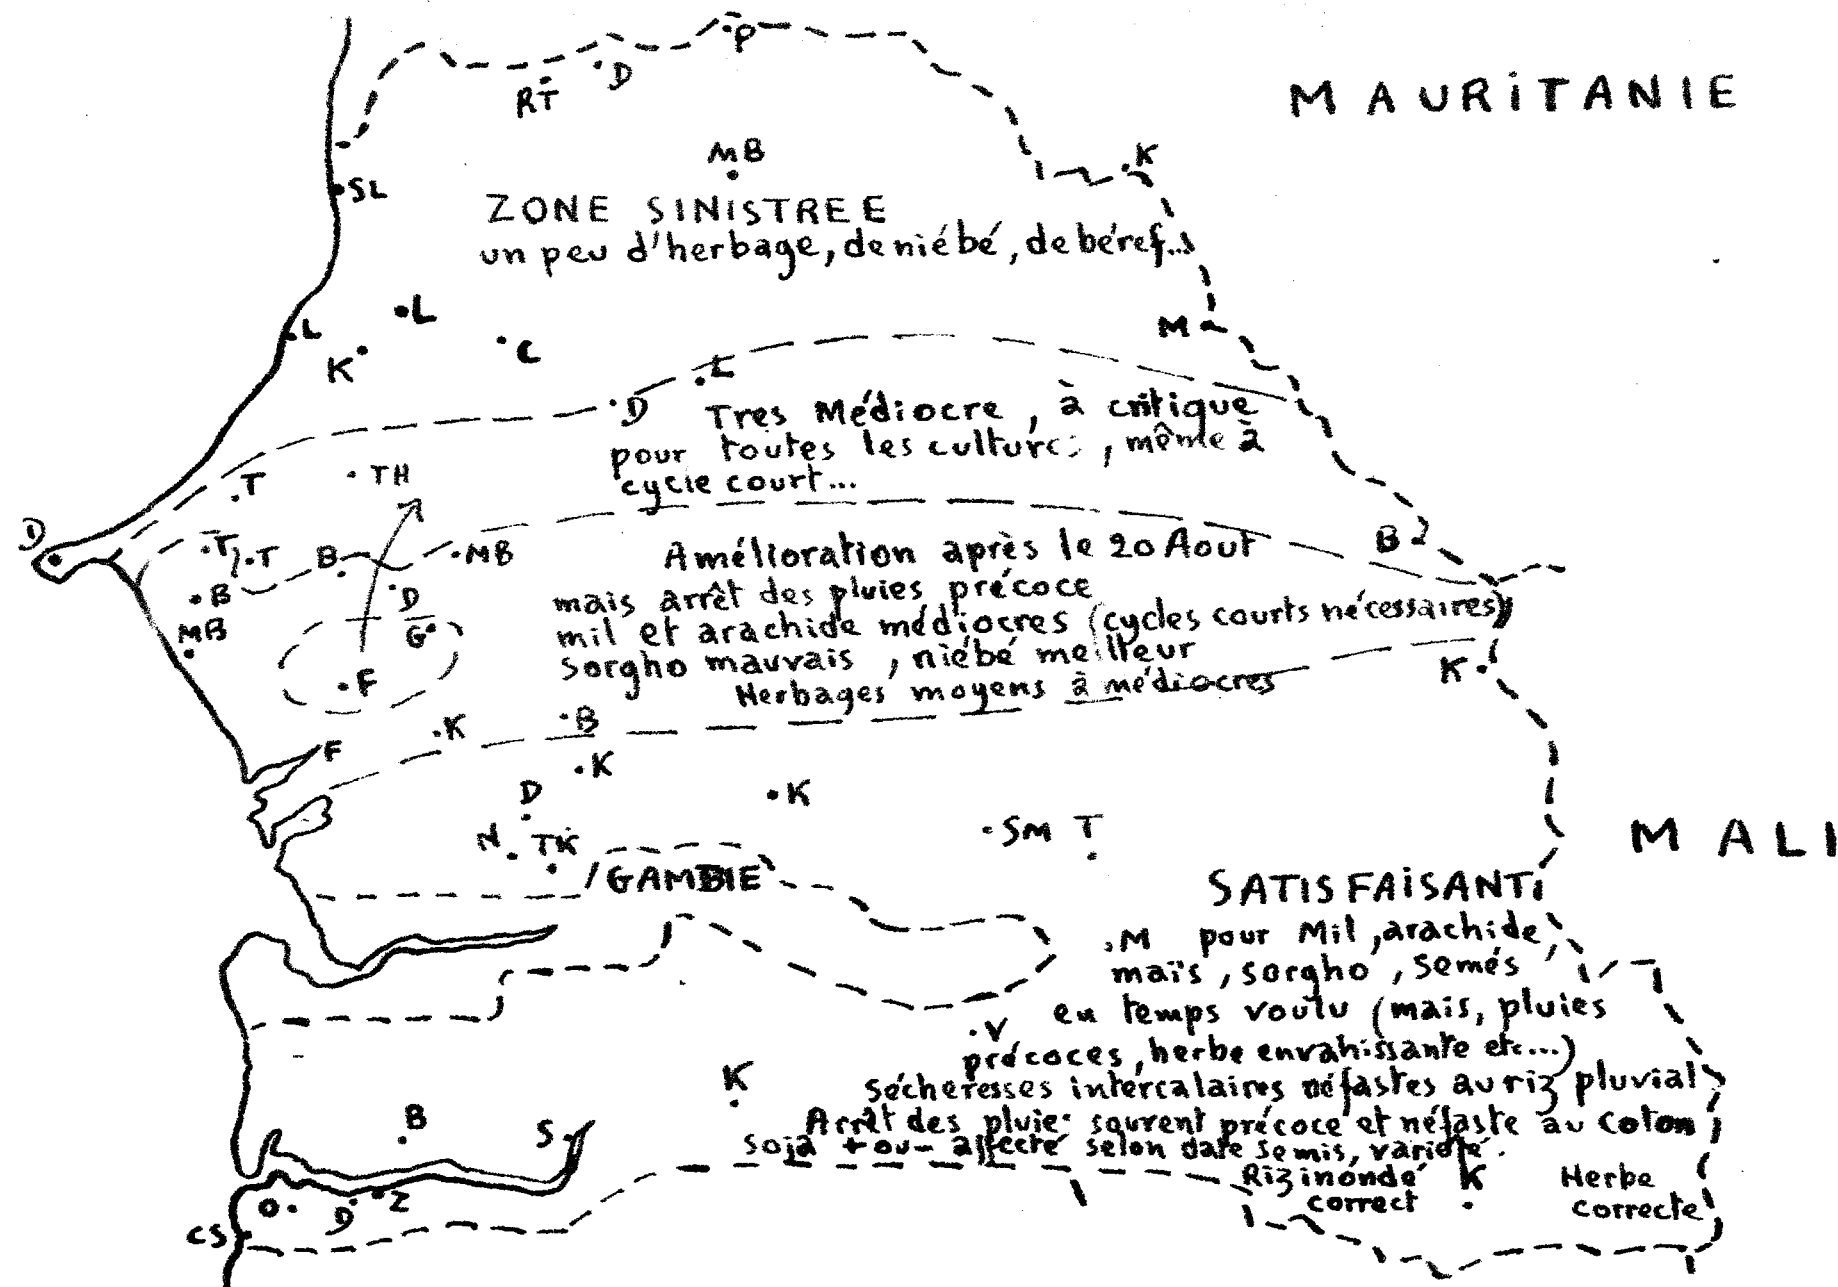 P
D
RT
MAURiTANIE
MB
K
SL
ZONE SINISTREE
un peu d'herbage, de niébé, de béref...
L
L
M
K
C
L
D
Tres Médiocre, à critique
pour toutes les cultures, même à
cycle court...
T
TH
D
T
T
B
MB
B
Amélioration après le 20 Aout
B
D
mais arrêt des pluies précoce
MB
G
mil et arachide médiocres (cycles courts nécessaires)
Sorgho mauvais, niébé meilleur
F
K
Herbages moyens à médiocres
K
B
F
K
D
K
N
TK
SM
T
MALI
GAMBIE
SATISFAiSANT
M
pour Mil, arachide,
maïs, sorgho, semés
en temps voulu (mais, pluies
V
précoces, herbe envahissante etc...)
K
Sécheresses intercalaires néfastes au riz pluvial
B
S
Arrêt des pluies souvent précoce et néfaste au Coton
soja + ou - affecté selon date semis, variété.
Riz inondé
K
Herbe
correct
correcte
O
D
Z
CS